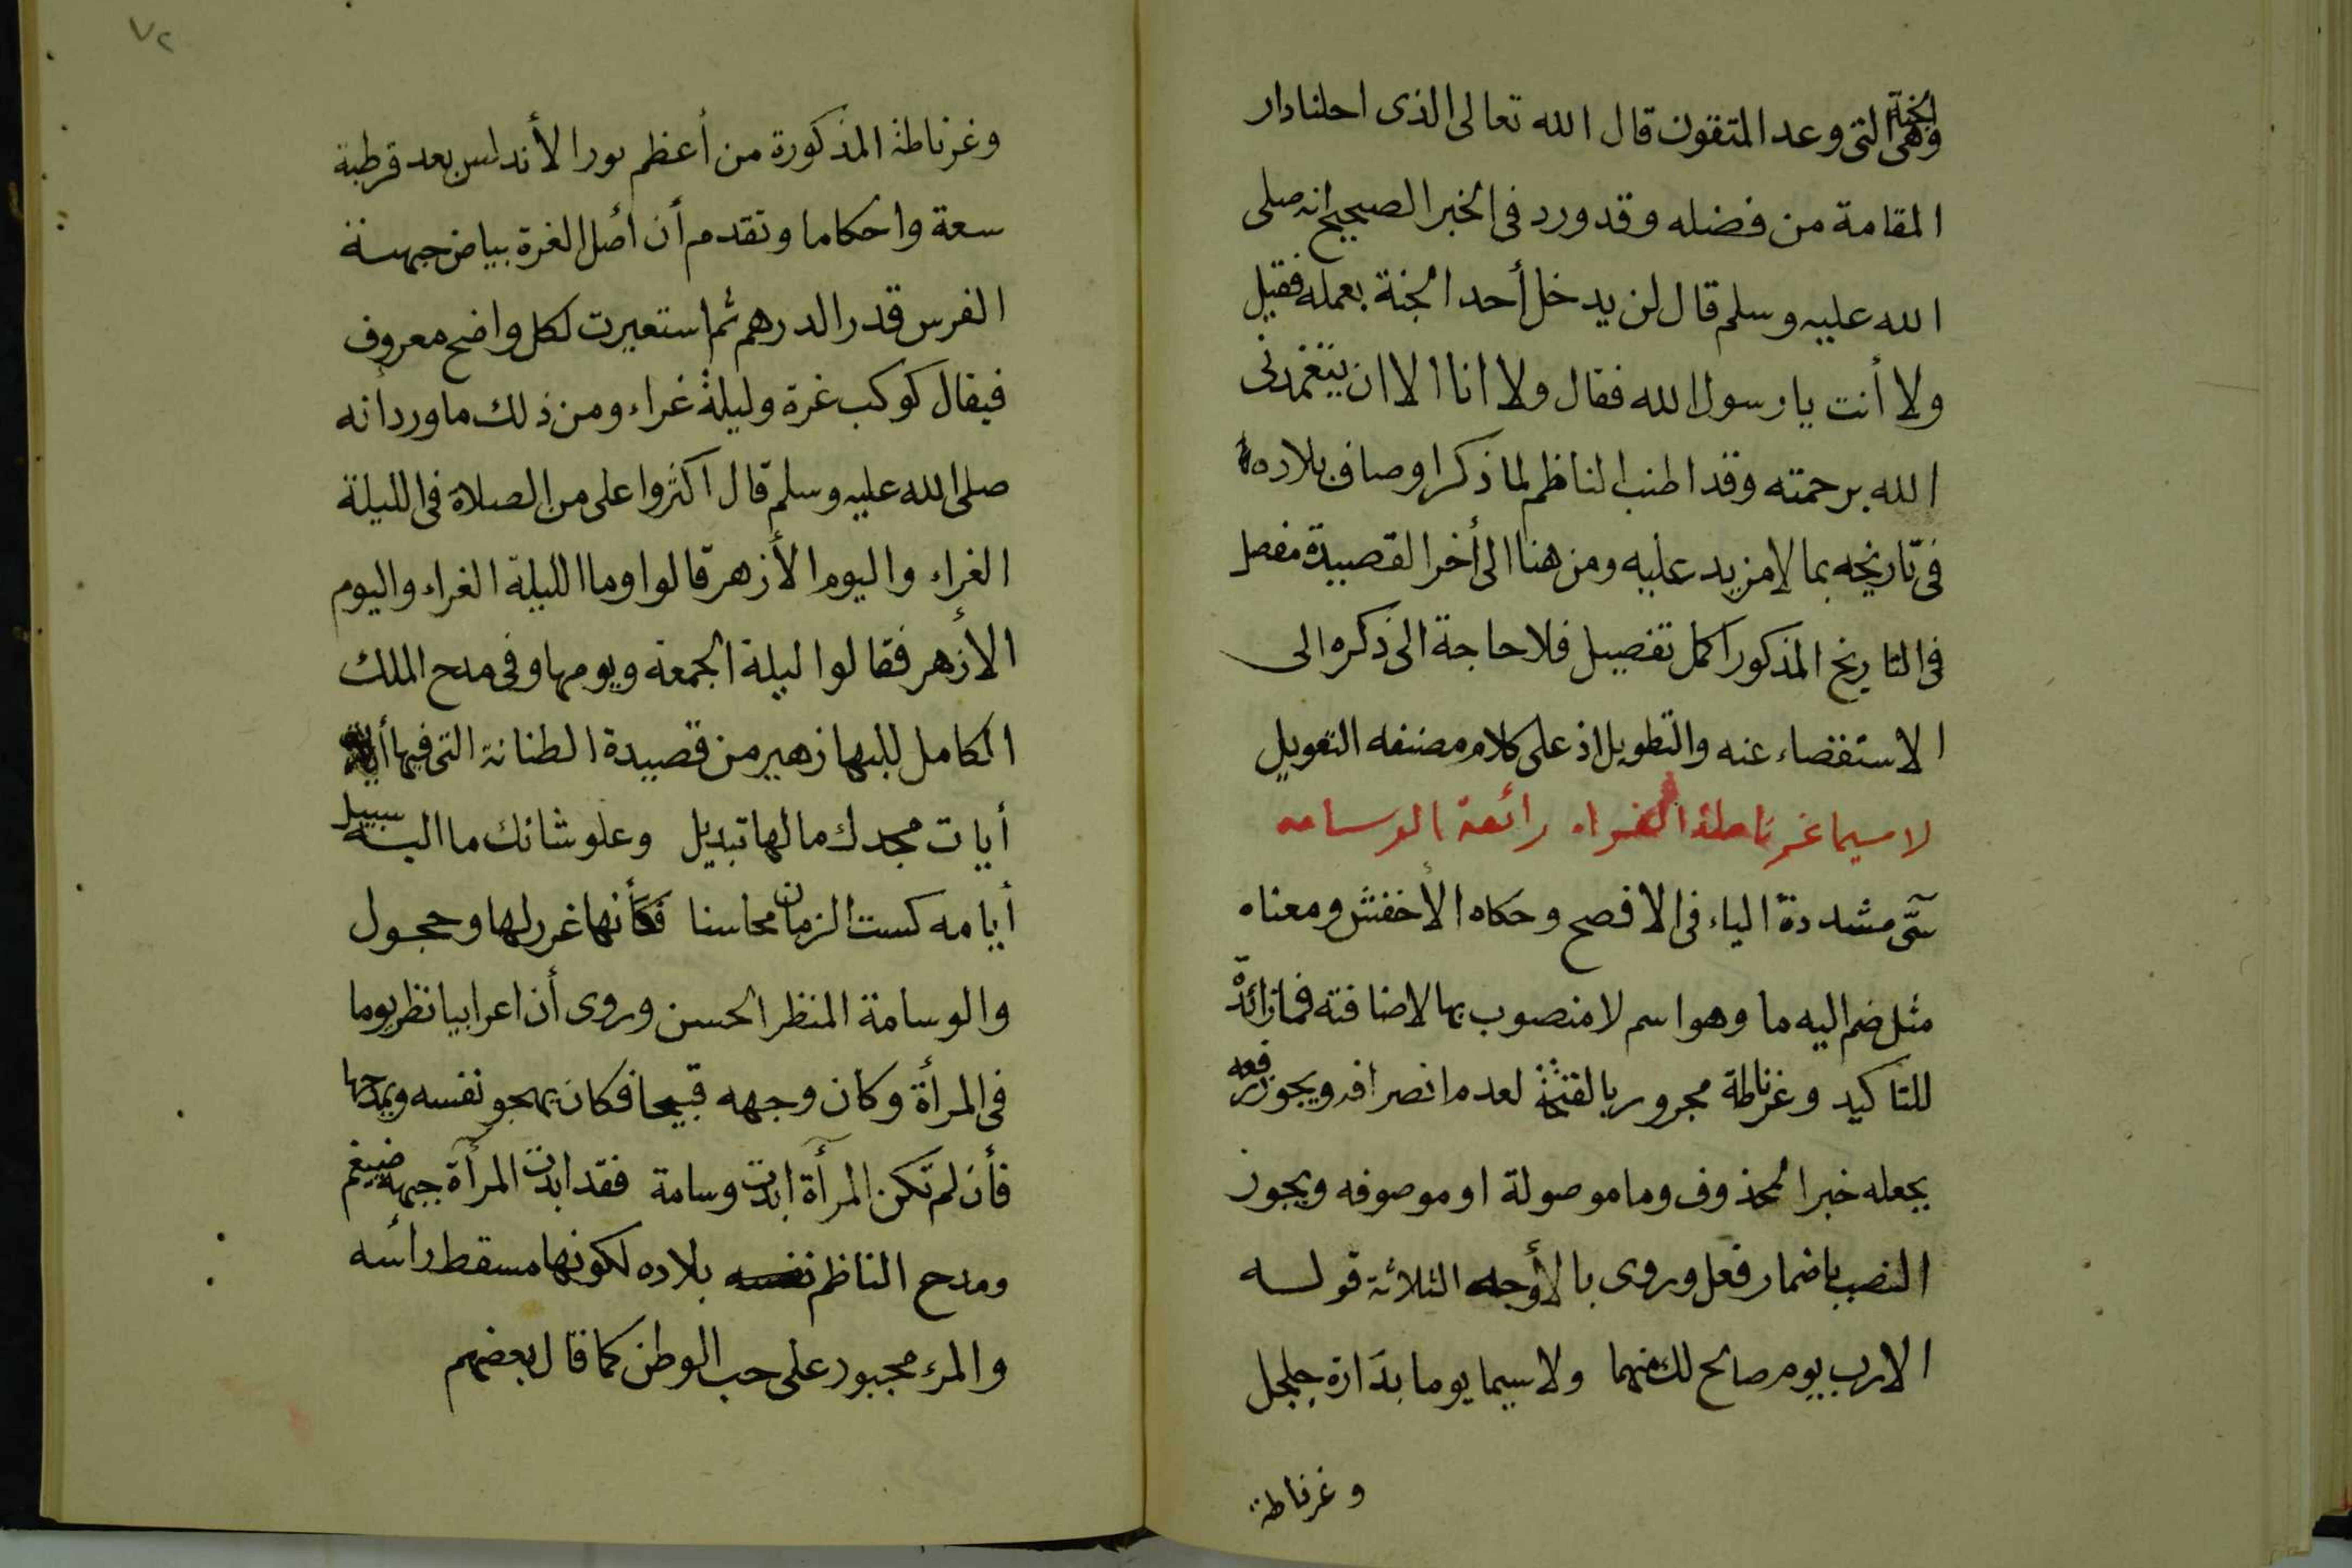 وهى الجنة التى وعد المتقون قال الله تعالى الذى احلنا دار
المقامة من فضله وقد ورد فى الخبر الصحيح انه صلى
الله عليه وسلم قال لن يدخل أحد الجنة بعمله فقيل
ولا أنت يا رسول الله فقال ولا انا الا ان يتغمدنى
الله برحمته وقد اطنب الناظم لما ذكر اوصاف بلاده
فى تاريخه بما لا مزيد عليه ومن هنا الى أخر القصيدة مفصل
فى التاريخ المذكور اكمل تفصيل فلا حاجة الى ذكره الى
الاستقصاء عنه والتطويل اذ على كلام مصنفه التعويل
لا سيما غرناطة الغراء رائعة الوسامه
سىّ مشددة الياء فى الافصح وحكاه الأخفش ومعناه
مثل ضم اليه ما وهو اسم لا منصوب بها لاضافته فما زائدة
للتاكيد وغرناطة مجرور بالفتحة لعدم انصرافه ويجوز رفعه
بجعله خبرا لمحذوف وما موصولة او موصوفه ويجوز
النصب باضمار فعل وروى بالأوجه الثلاثة قوله
الا رب يوم صالح لك منهما ولا سيما يوما بدارة جلجل
وغرناطة
٧٢
وغرناطة المذكورة من أعظم بور الأندلس بعد قرطبة
سعة واحكاما وتقدم أن أصل الغرة بياض جبهة
الفرس قدر الدرهم ثم استعيرت لكل واضح معروف
فيقال كوكب غرة وليلة غراء ومن ذلك ما ورد انه
صلى الله عليه وسلم قال اكثروا على من الصلاة فى الليلة
الغراء واليوم الأزهر قالوا وما الليلة الغراء واليوم
الأزهر فقالوا ليلة الجمعة ويومها وفى مدح الملك
الكامل للبها زهير من قصيدة الطنانة التى فيها
أيات مجدك ما لها تبديل وعلو شانك ما اليه سبيل
أيامه كست الزمان محاسنا فكأنها غرر لها وحجول
والوسامة المنظر الحسن وروى أن اعرابيا نظر يوما
فى المرأة وكان وجهه قبيحا فكان يهجو نفسه ويمدحها
فأن لم تكن المرآة ابدت وسامة فقد ابدت المرآة جبهة ضيغم
ومدح الناظم نفسه بلاده لكونها مسقط رأسه
والمرء مجبور على حب الوطن كما قال بعضهم